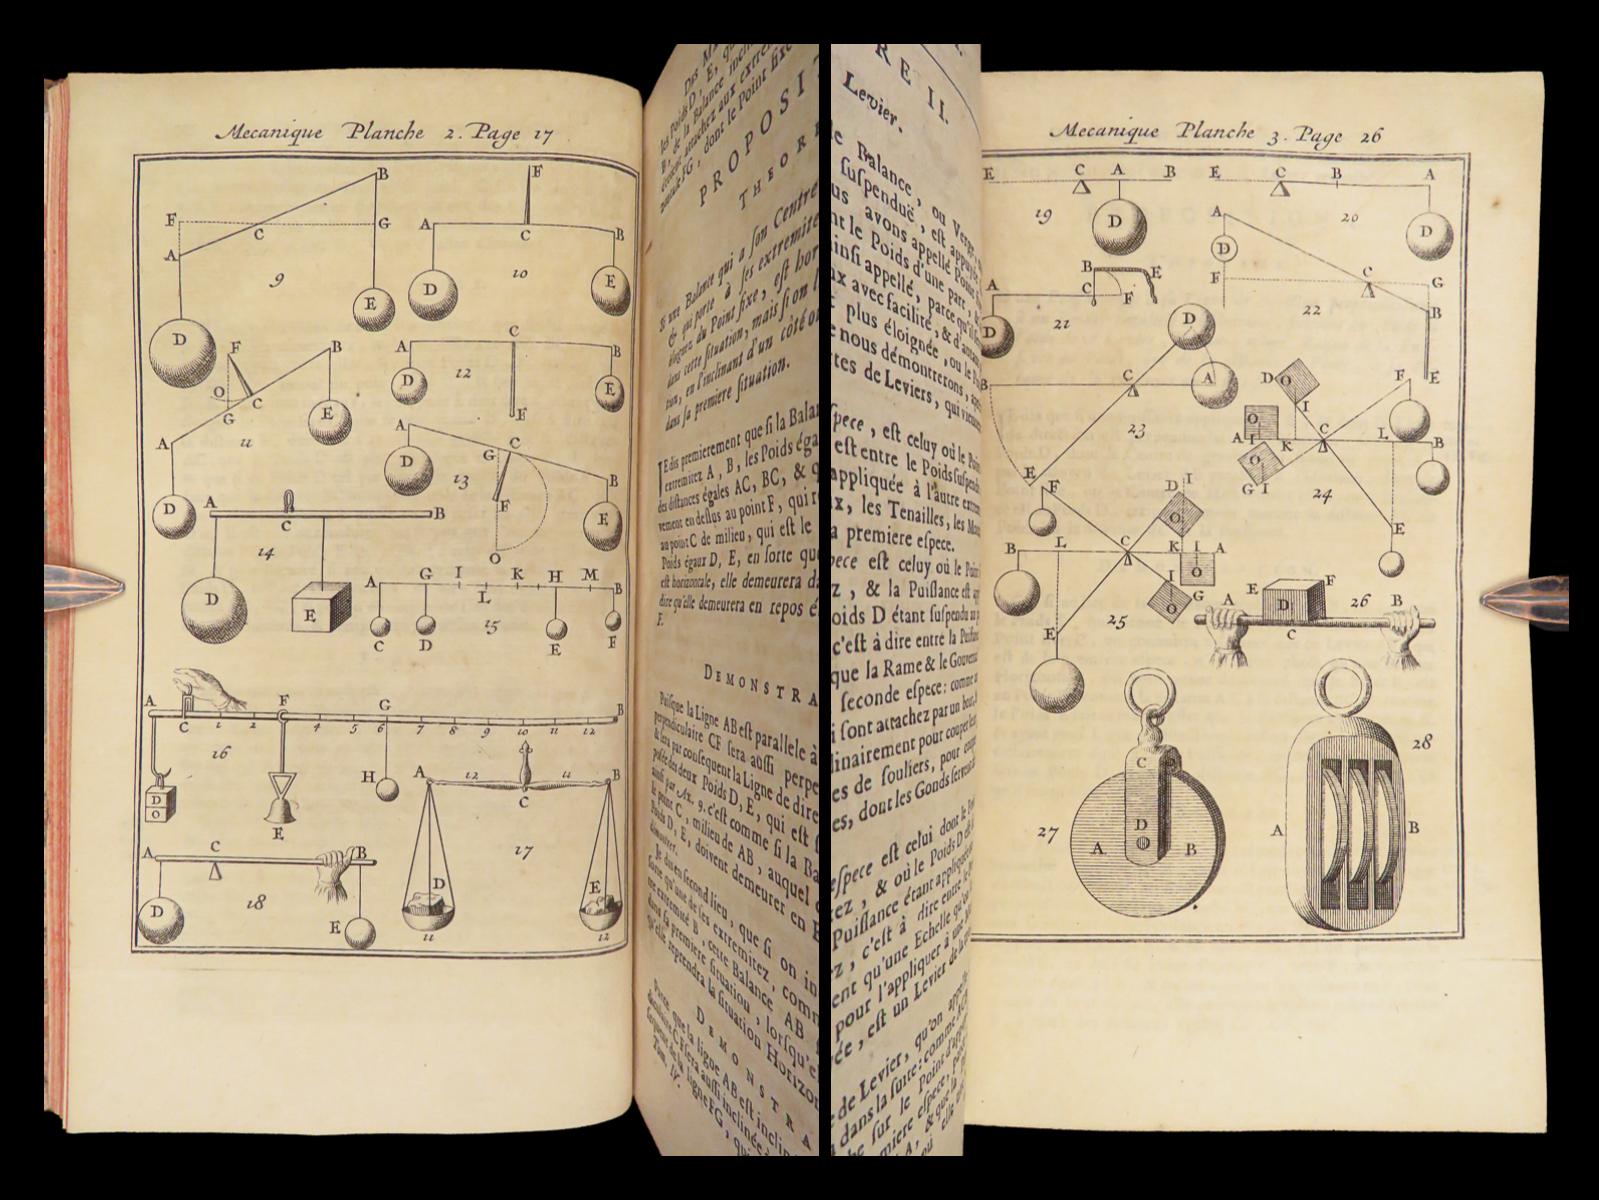 Mecanique Planche 2. Page 17
B
F
G
C
A
9
D
E
F
A
C
B
10
D
E
F
B
O
G
C
A
11
E
D
C
A
B
12
D
E
F
A
C
G
B
13
D
F
E
O
A
C
B
14
D
E
A
G
I
K
H
M
B
L
15
C
D
E
F
A
F
G
B
C
1
2
4
5
6
7
8
9
10
11
12
16
D
O
E
H
A
12
11
B
C
17
D
E
11
12
A
C
B
18
D
E
les Poids D, E, qu
B, de la Balance
dont le Point fixe
PROPOSI
THEOR
Si une Balance qui a son Centre
& qui porte à ses extremitez
éloignez du Point fixe, est hor
dans cette situation, mais si on l
tun, en l'inclinant d'un côté o
dans sa premiere situation.
JE dis premierement que si la Bala
extremitez A, B, les Poids éga
des distances égales AC, BC, & q
vement en dessus au point F, qui r
au point C de milieu, qui est le
Poids égaux D, E, en sorte qu
est horizontale, elle demeurera d
dire qu'elle demeurera en repos é
F.
DEMONSTRA
Puisque la Ligne AB est parallele à
perpendiculaire CF sera aussi perpe
& sera par consequent la Ligne de dire
posée des deux Poids D, E, qui est
aussi par Ax. 9. c'est comme si la Ba
le point C, milieu de AB, auquel
Poids D, E, doivent demeurer en
démontrer.
Je dis en second lieu, que si on in
sorte qu'une de ses extremitez, comm
tre extremité B, cette Balance AB
dans sa premiere situation, lorsqu'e
qu'elle reprendra la situation Horizon
DEMONSTRA
Parce que la ligne AB est inclin
diculaire CF sera aussi inclinée à
sequent de la ligne FG, qui
Tom. IV.
RE II.
Levier.
e Balance, ou Verge
suspenduë, est appuyée
us avons appellé Point
nt le Poids d'une part, &
insi appellé, parce qu'il
ux avec facilité, & d'autant
plus éloignée, ou le P
e nous démontrerons, apr
tes de Leviers, qui vienn
spece, est celuy où le Poin
est entre le Poids suspendu
appliquée à l'autre extrem
x, les Tenailles, les Mou
a premiere espece.
pece est celuy où le Poin
z, & la Puissance est ap
oids D étant suspendu au p
c'est à dire entre la Puissan
que la Rame & le Gouvern
seconde espece: comme au
i sont attachez par un bout,
linairement pour couper
es de souliers, pour coupe
es, dont les Gonds servent de
espece est celui dont le Poi
ez, & où le Poids D est
Puissance étant appliquée
z, c'est à dire entre le
ent qu'une Echelle qu'on
pour l'appliquer à une M
ée, est un Levier de la
de Levier, qu'on appelle
dans la suite: comme
che sur le Point d'app
miere espece,
A, & que la
Mecanique Planche 3. Page 26
E
C
A
B
19
D
E
C
B
A
20
D
A
B
E
C
F
21
D
A
D
F
C
G
22
B
E
D
B
C
A
23
E
D
O
I
F
O
A
I
K
C
L
B
O
G
I
24
E
F
D
I
O
B
L
C
K
I
A
O
I
G
E
25
A
E
F
D
26
B
C
C
D
A
B
27
28
A
B